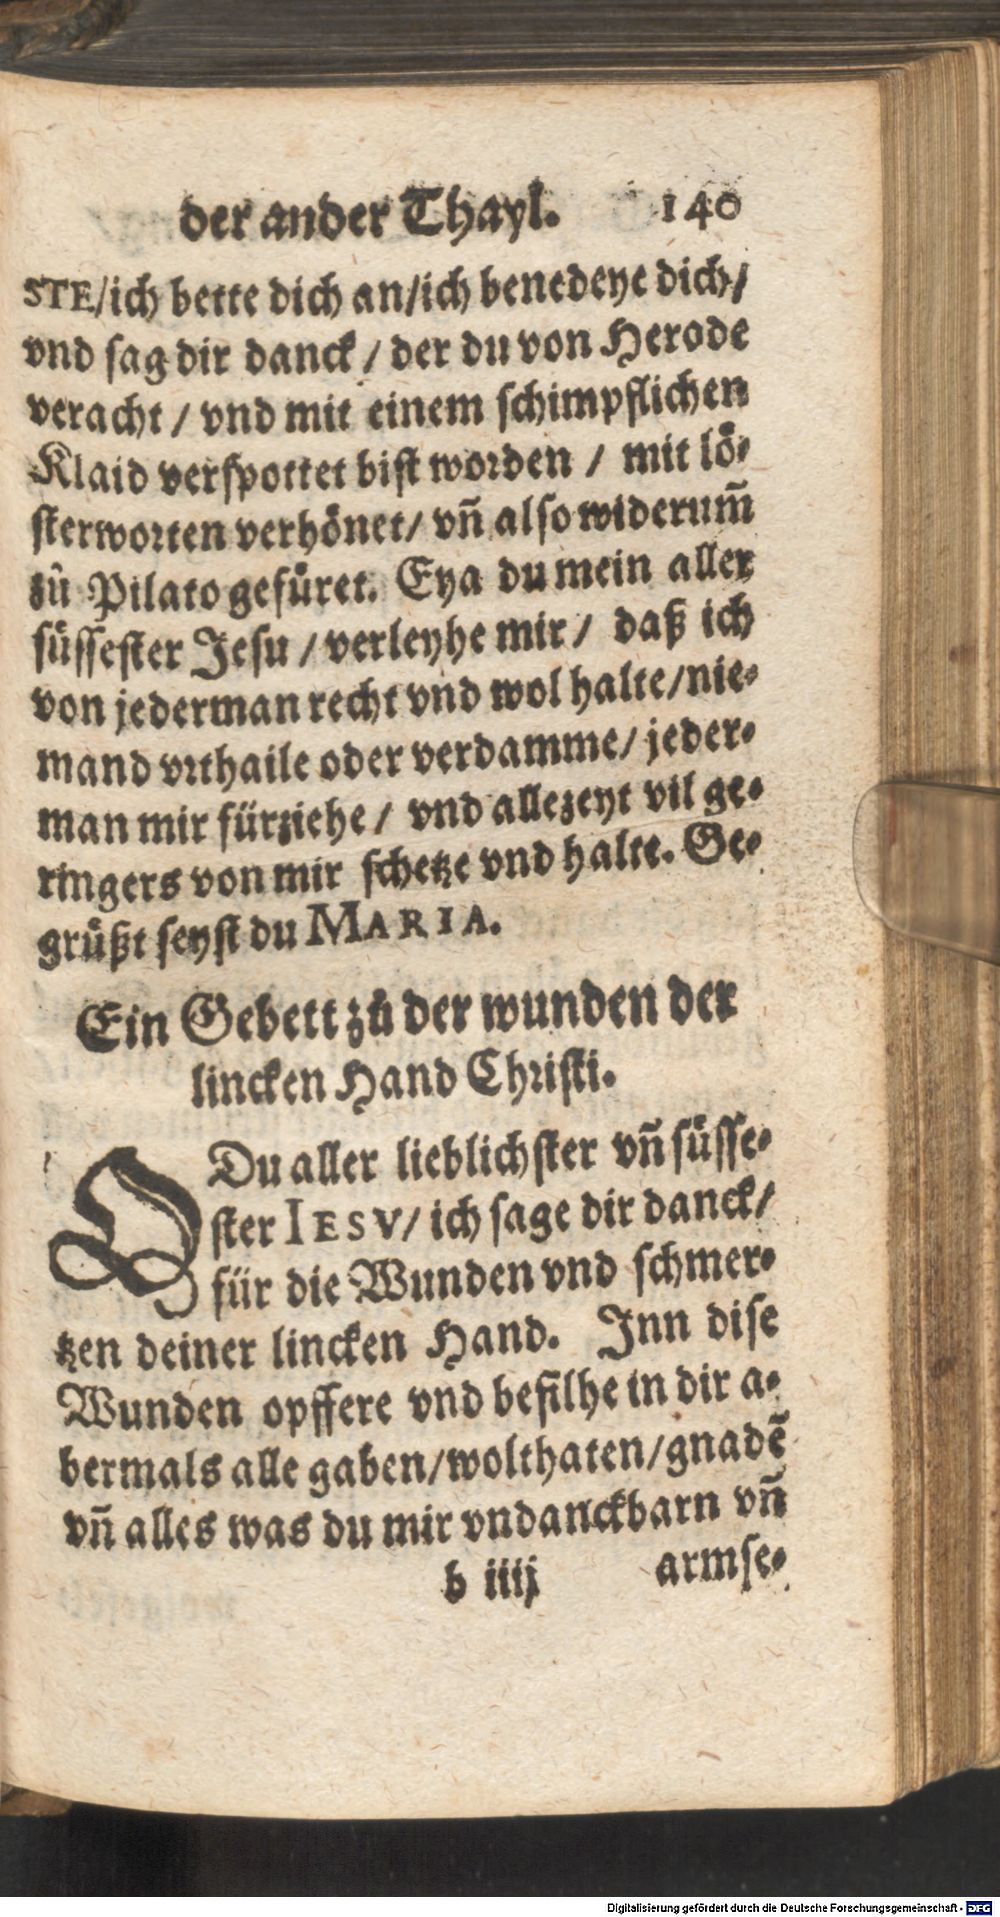 der ander Thayl. 140
STE/ich bette dich an/ich benedeye dich/
vnd sag dir danck / der du von Herode
veracht / vnd mit einem schimpflichen
Klaid verspottet bist worden / mit lö-
sterworten verhönet/ vñ also widerum̃
zů Pilato gefüret. Eya du mein aller
süssester Jesu / verleyhe mir / daß ich
von jederman recht vnd wol halte/nie-
mand vrthaile oder verdamme/ jeder-
man mir fürziehe / vnd allezeyt vil ge-
ringers von mir schetze vnd halte. Ge-
grüßt seyst du MARIA.
Ein Gebett zů der wunden der
lincken Hand Christi.
O Du aller lieblichster vñ süsse-
ster IESV/ ich sage dir danck/
für die Wunden vnd schmer-
tzen deiner lincken Hand. Inn dise
Wunden opffere vnd befilhe in dir a-
bermals alle gaben/wolthaten/gnadẽ
vñ alles was du mir vndanckbarn vñ
b iiij armse-
Digitalisierung gefördert durch die Deutsche Forschungsgemeinschaft - DFG